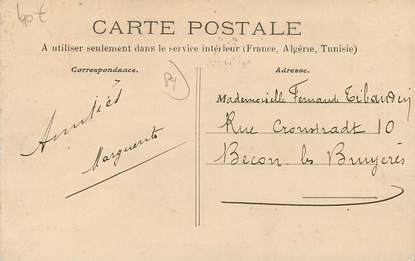 40€
CARTE POSTALE
A utiliser seulement dans le service intérieur (France, Algérie, Tunisie)
Correspondance.
Adresse.
Amitiés
Marguerite
Mademoiselle Fernand
Rue Cronstradt 10
Becon les Bruyères